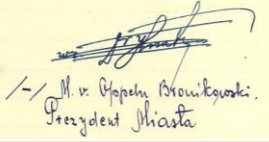 /-/ M. v. Oppeln Bronikowski.
Prezydent Miasta